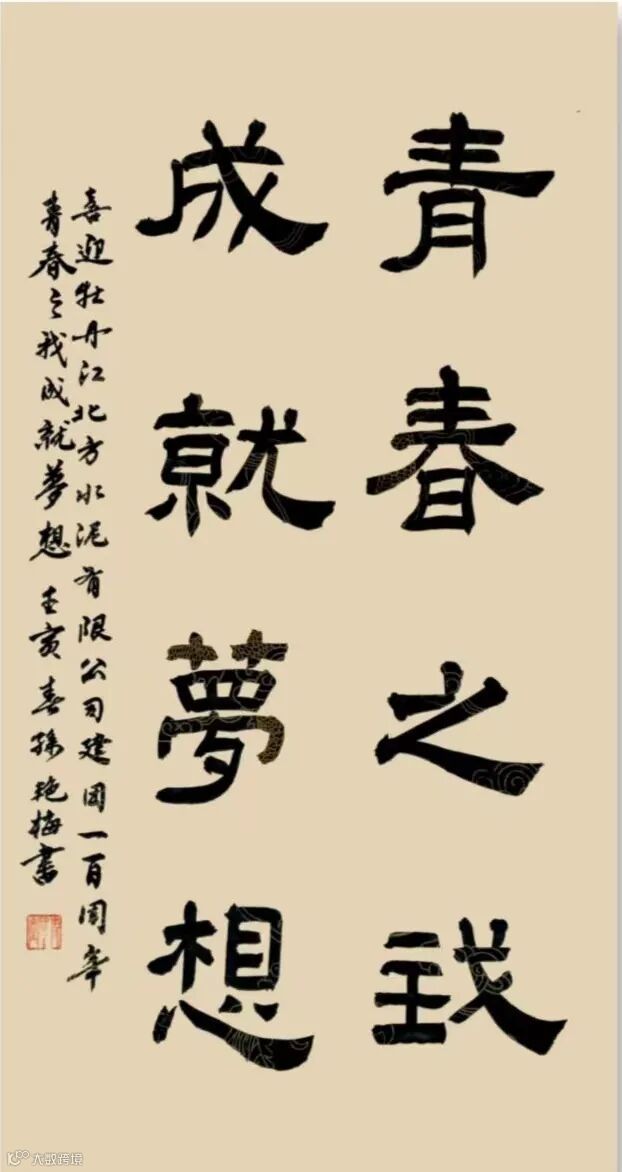 青春之我
成就夢想
喜迎牡丹江北方水泥有限公司建团一百周年
青春之我成就夢想 壬寅春孫艳梅書
大数跨境